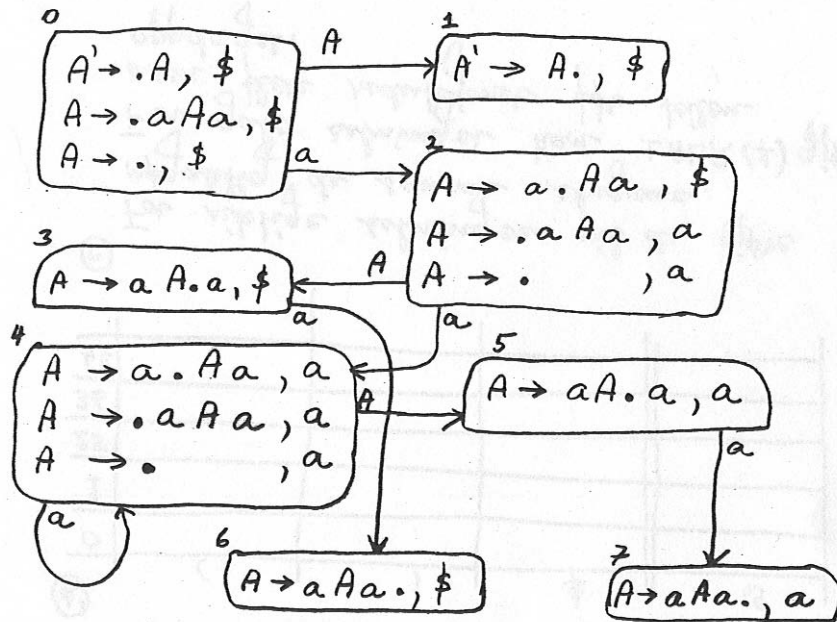 0
A' → .A, $
A → .aAa, $
A → ., $
A
a
1
A' → A., $
2
A → a.Aa, $
A → .aAa, a
A → . , a
A
a
3
A → aA.a, $
a
4
A → a.Aa, a
A → .aAa, a
A → . , a
A
a
5
A → aA.a, a
a
6
A → aAa., $
7
A → aAa., a